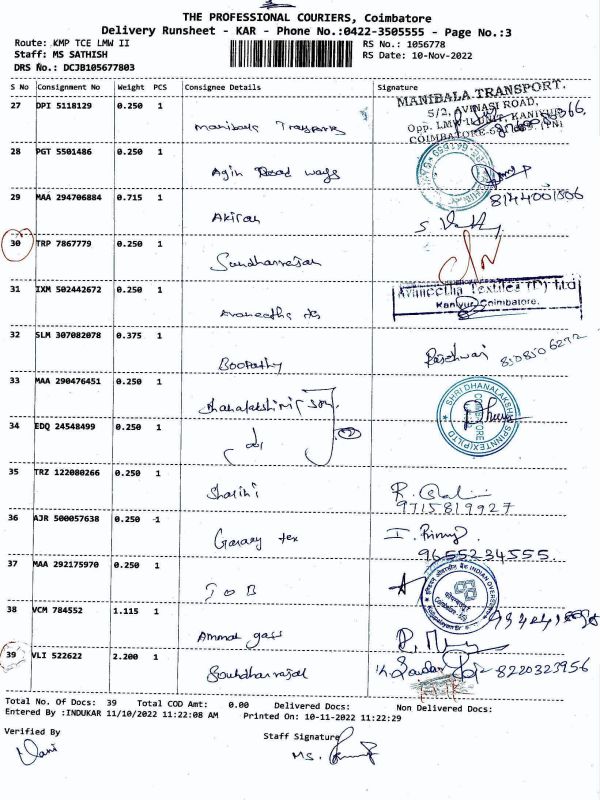 THE PROFESSIONAL COURIERS, Coimbatore
Delivery Runsheet - KAR - Phone No.:0422-3505555 - Page No.:3
Route: KMP TCE LMW II
RS No.: 1056778
Staff: MS SATHISH
RS Date: 10-Nov-2022
DRS No.: DCJB105677803
S No Consignment No Weight PCS Consignee Details Signature
27 DPI 5118129 0.250 1 Manibala Transport
MANIBALA TRANSPORT.
5/2, AVINASI ROAD,
Opp. LMW-II UNIT, KANIYUR
COIMBATORE
28 PGT 5501486 0.250 1 Agin Road ways
8144001806
29 MAA 294706884 0.715 1 Akiran
30 TRP 7867779 0.250 1 Soundharrajan
31 IXM 502442672 0.250 1 Avaneetha
Avineetha Textiles (P) Ltd
Kaniyur, Coimbatore.
32 SLM 307082078 0.375 1 Boopathy
8508506292
33 MAA 290476451 0.250 1 Dhanalakshmi
SHRI DHANALAKSHMI SPINNTEX(P)LTD
COIMBATORE
34 EDQ 24548499 0.250 1
35 TRZ 122080266 0.250 1 Sharini
9715819927
36 AJR 500057638 0.250 1 Garary tex
9655234555.
37 MAA 292175970 0.250 1 IOB
INDIAN OVERSEAS
38 VCM 784552 1.115 1 Ammal gass
39 VLI 522622 2.200 1 Soundharrajan
8220323956
Total No. Of Docs: 39 Total COD Amt: 0.00 Delivered Docs: Non Delivered Docs:
Entered By :INDUKAR 11/10/2022 11:22:08 AM Printed On: 10-11-2022 11:22:29
Verified By
Staff Signature
Mani
MS.